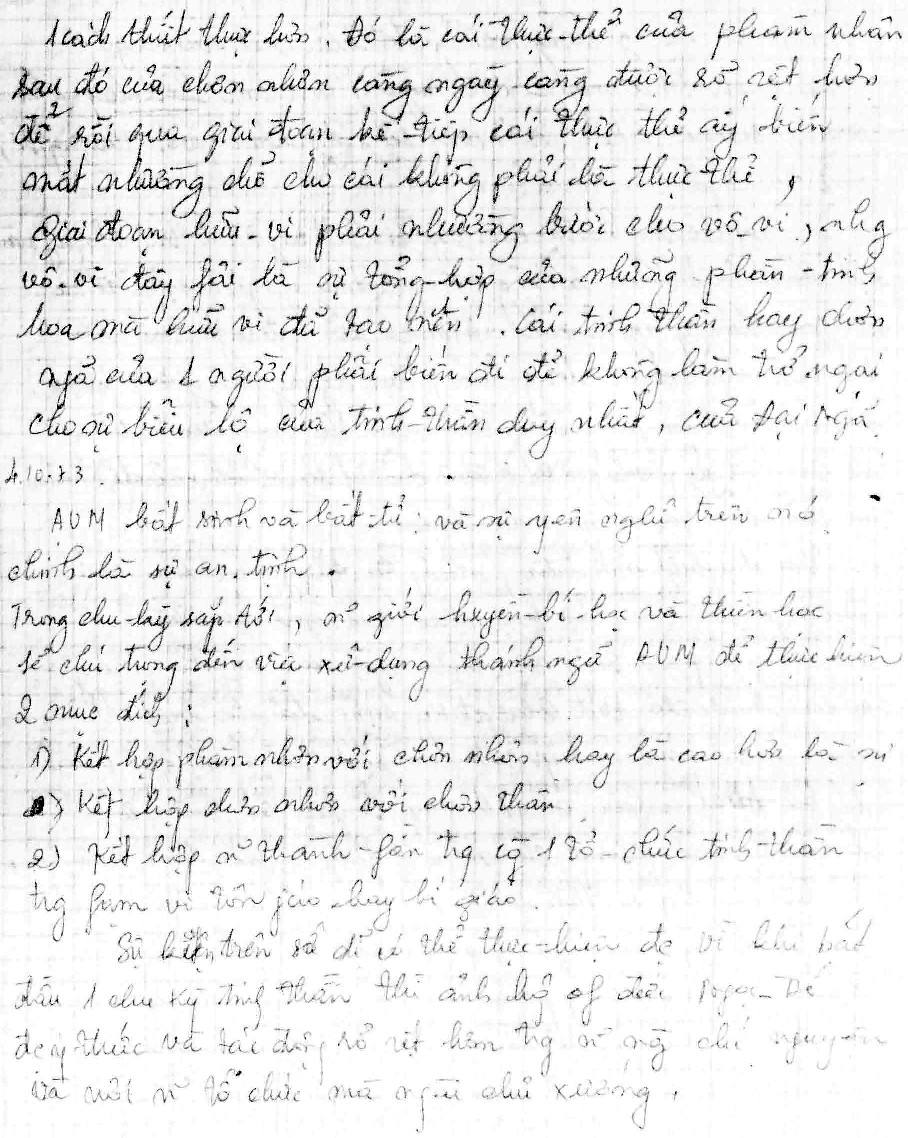 1 cách thiết thực hơn. Đó là cái thực-thể của phàm nhân
sau đó của chơn nhơn càng ngày càng được rõ rệt hơn
để rồi qua giai đoạn kế-tiếp cái thực thể ấy biến
mất nhường chổ cho cái không phải là thực-thể,
Giai đoạn hữu-vi phải nhường bước cho vô-vi, nhg
vô-vi đây fải là sự tổng-hợp của những phần-tinh
hoa mà hữu vi đã tạo nên. Cái tinh thần hay chơn
ngả của 1 người phải biến đi để không làm trở ngại
cho sự biểu lộ của tinh-thần duy nhất, của Đại Ngã
4.10.73.
AUM bất sinh và bất-tử: và sự yên nghỉ trên nó
chính là sự an-tịnh.
Trong chu-kỳ sắp tới, n~ giới huyền-bí-học và thiền học
sẽ chú trọng đến việc xử-dụng thánh ngữ AUM để thực hiện
2 mục đích:
1) Kết hợp phàm nhơn với chơn nhơn hay là cao hơn là sự
Kết hợp chơn nhơn với chơn thần
2) Kết hợp n~ thành-fần tg cg 1 tổ-chức tinh-thần
tg fạm vi tôn jáo hay bí giáo.
Sự kiện trên sở dĩ có thể thực-hiện đc vì khi bắt
đầu 1 chu kỳ tinh thần thì ảnh hg of đức Ngọc-Đế
đc ý thức và tác động rõ rệt hơn tg n~ ng chí nguyện
và với n~ tổ chức mà ngài chủ xướng.